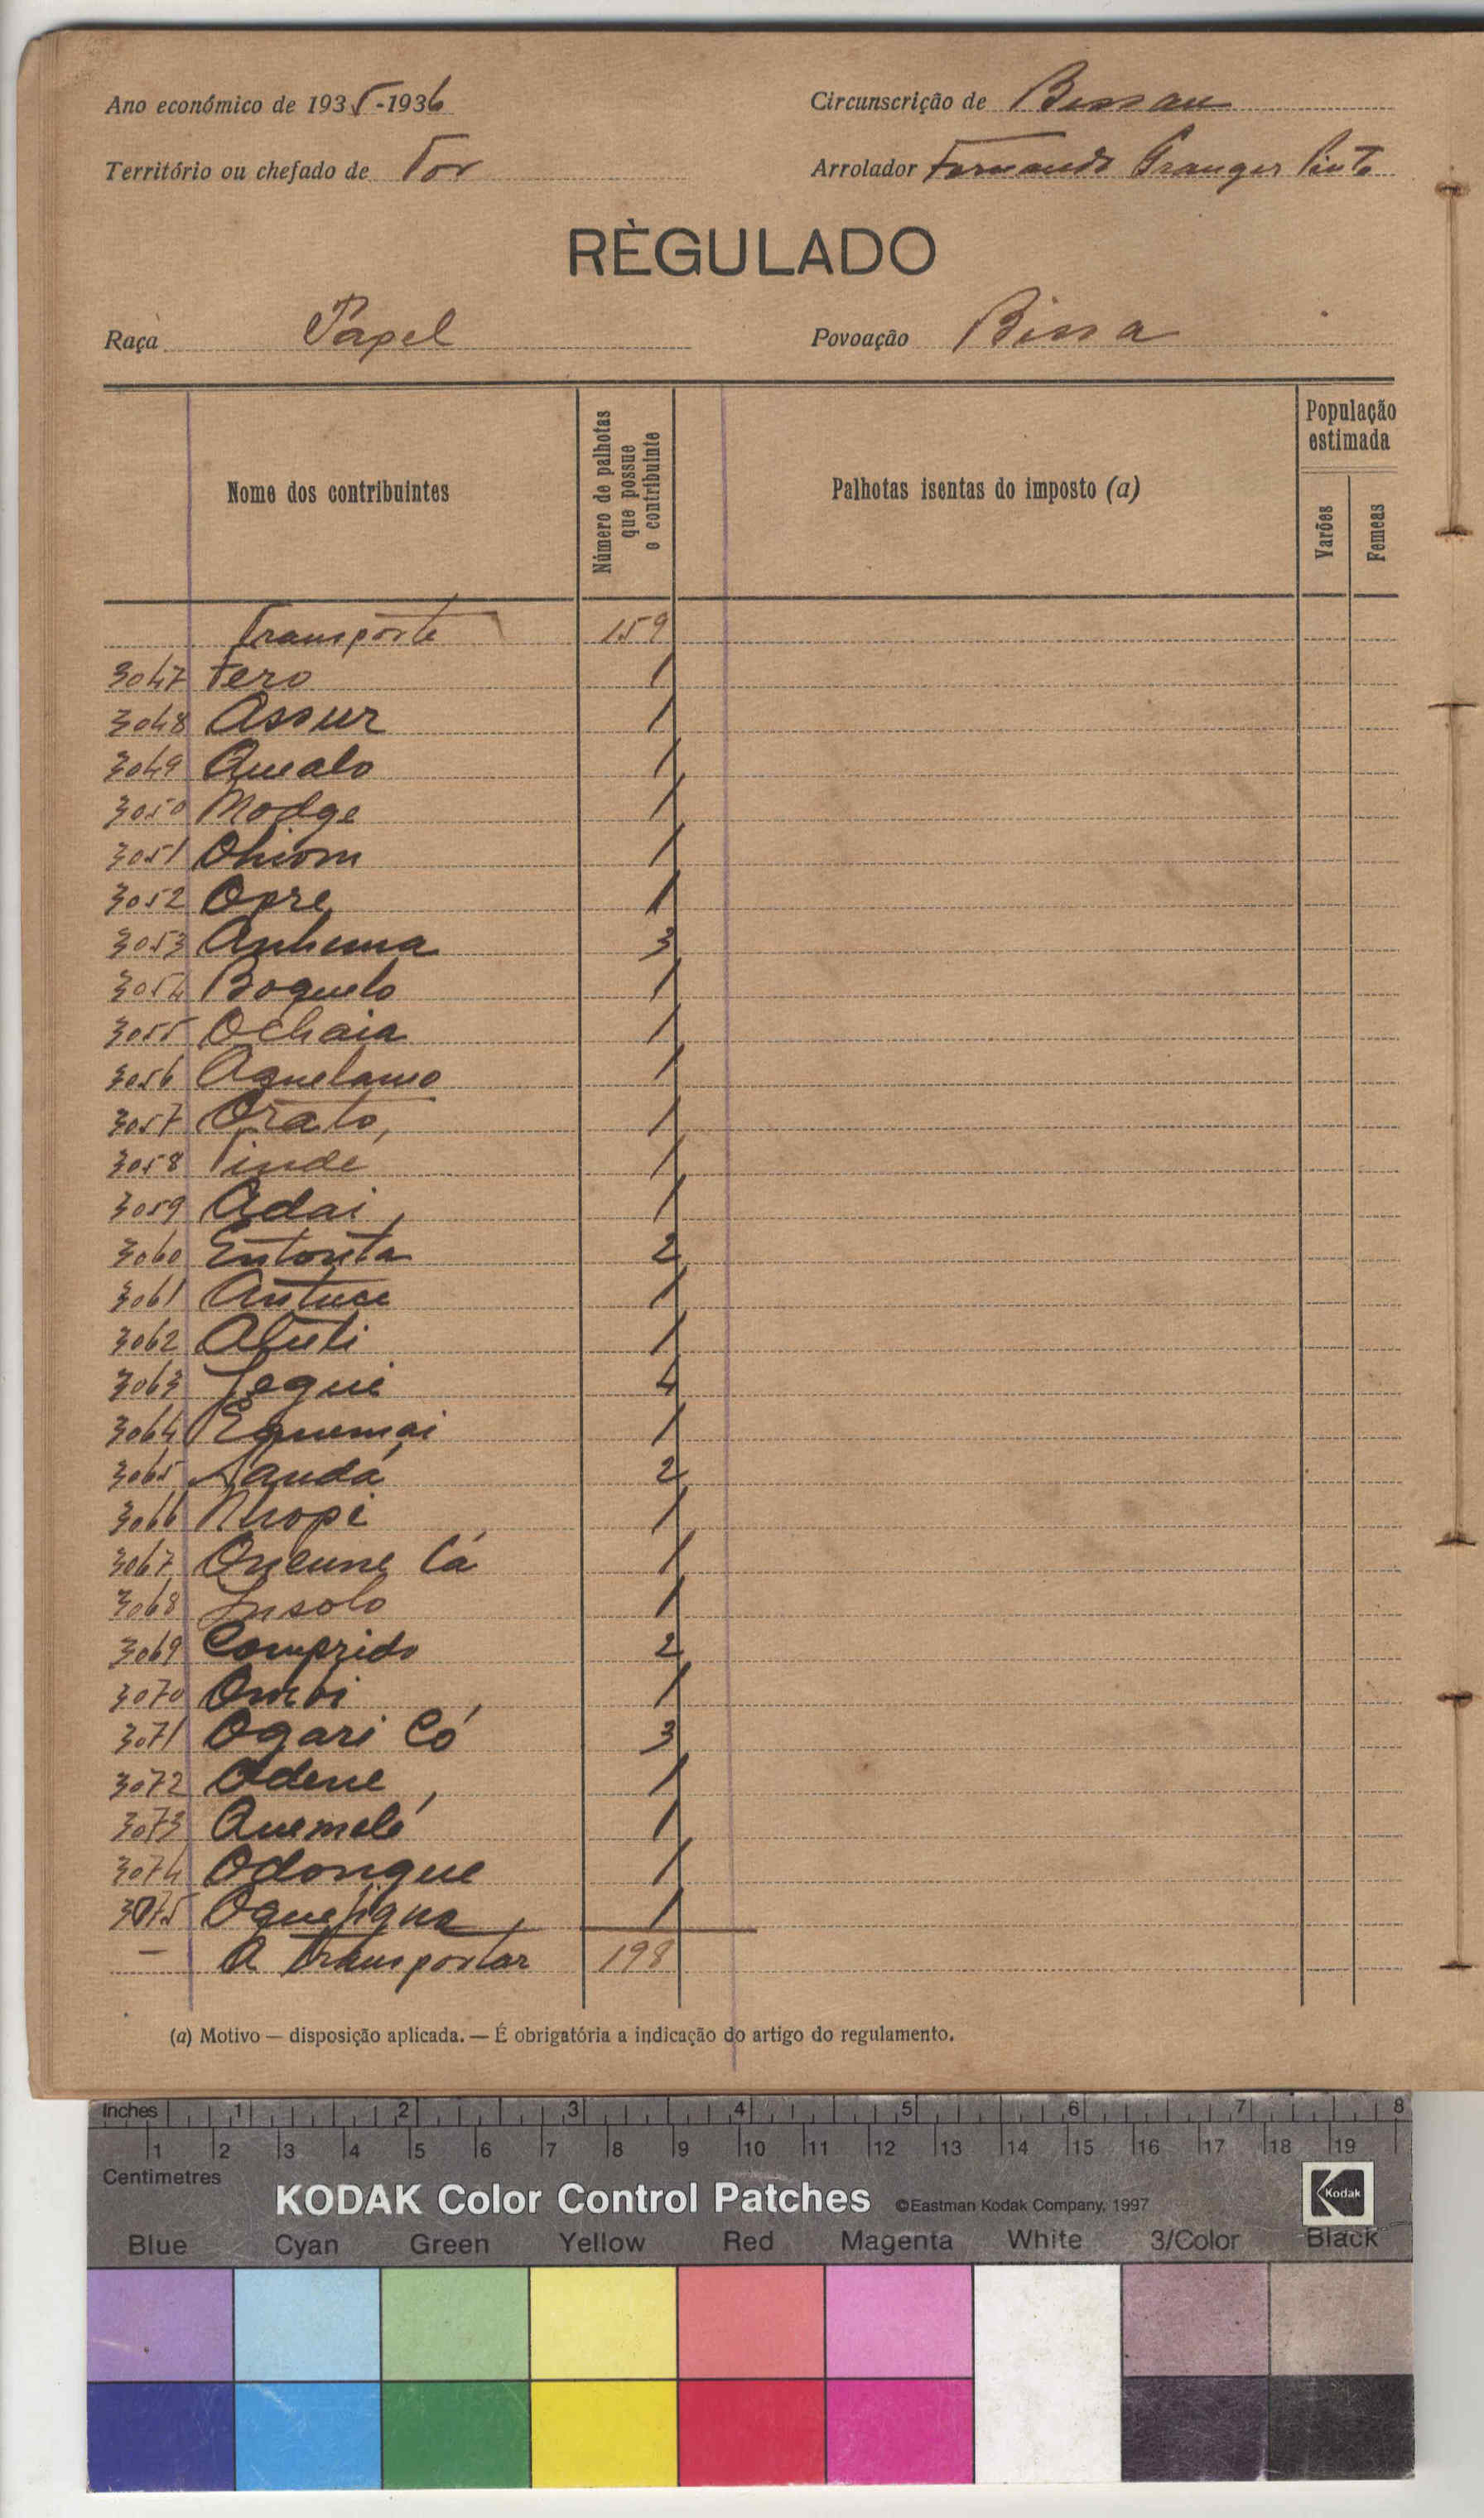 Ano económico de 1935-1936
Circunscrição de Bissau
Território ou chefado de Tor
Arrolador Fernando Granger Pinto
RÈGULADO
Raça Papel
Povoação Bissa
Nome dos contribuintes
Número de palhotas que possue o contribuinte
Palhotas isentas do imposto (a)
População estimada
Varões
Femeas
Transporte 159
3047 Fero 1
3048 Assur 1
3049 Quealo 1
3050 Modge 1
3051 Ohiom 1
3052 Opre 1
3053 Anhuma 3
3054 Boquelo 1
3055 Ochaia 1
3056 1
3057 Orato 1
3058 Pinde 1
3059 Adai 1
3060 Entonta 2
3061 1
3062 1
3063 Jequi 4
3064 1
3065 2
3066 Nhopi 1
3067 Cá 1
3068 Insolo 1
3069 Comprido 2
3070 Ombi 1
3071 Ogari Có 3
3072 Odene 1
3073 Quemelé 1
3074 Odongue 1
3075 1
— A transportar 198
(a) Motivo — disposição aplicada. — É obrigatória a indicação do artigo do regulamento.
Inches 1 2 3 4 5 6 7 8
1 2 3 4 5 6 7 8 9 10 11 12 13 14 15 16 17 18 19
Centimetres
KODAK Color Control Patches ©Eastman Kodak Company, 1997 Kodak
Blue Cyan Green Yellow Red Magenta White 3/Color Black